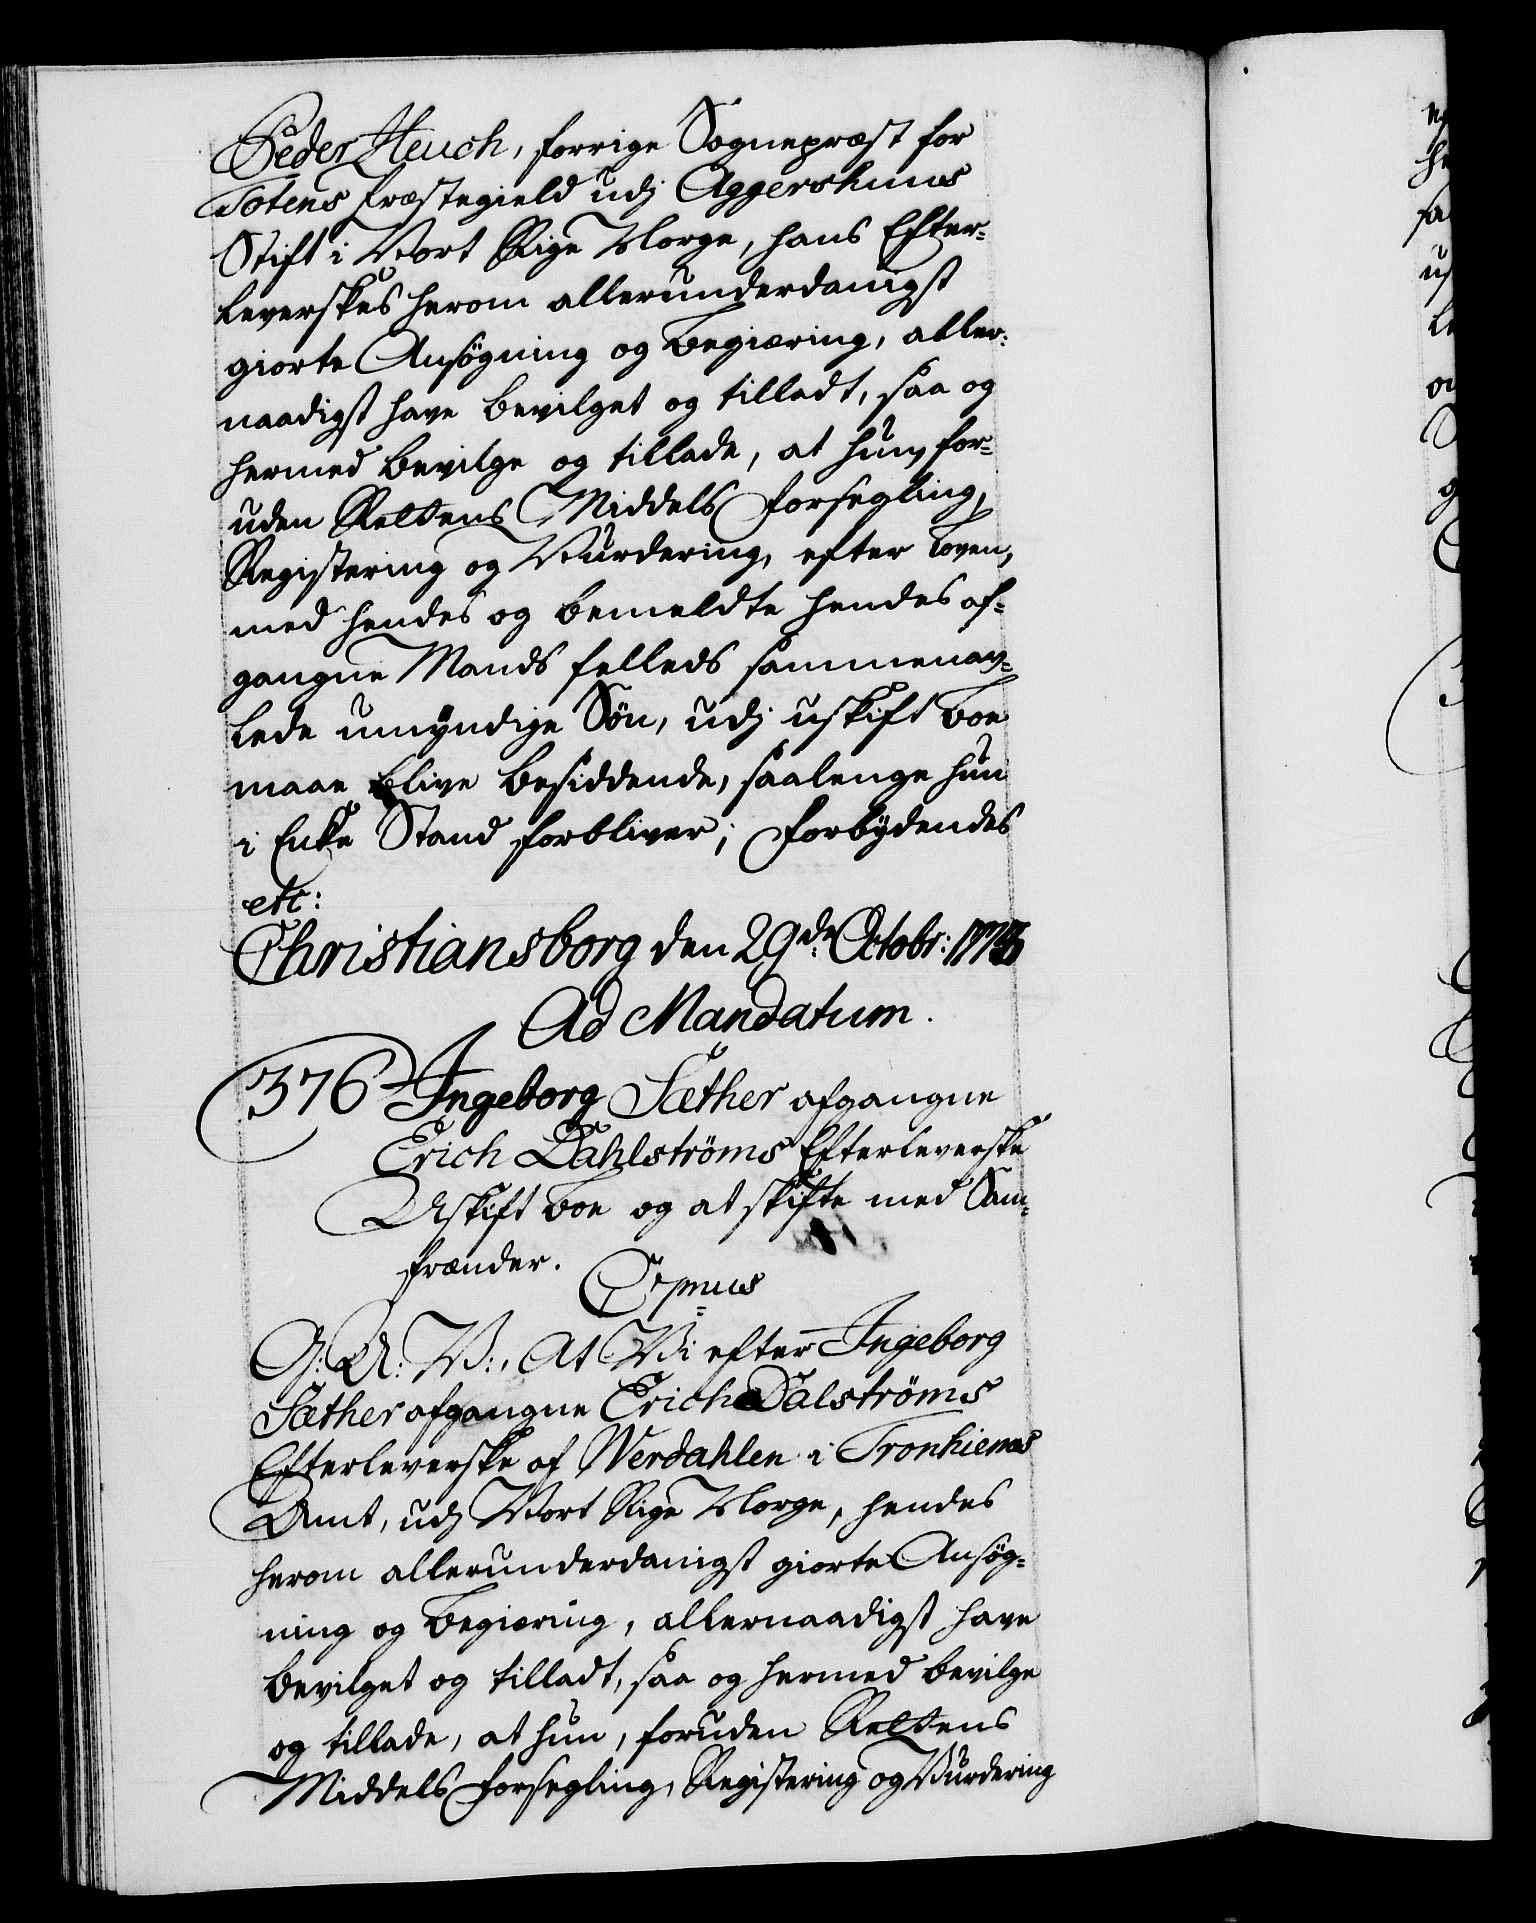 Peder Heuch, forrige Sognepræst for
Totens Præstegield udj Aggershuus
Stift i Vort Rige Norge, hans Efter-
leverskes herom allerunderdanigst
giorte Ansøgning og Begiæring, aller-
naadigst have bevilget og tilladt, saa og
hermed bevilge og tillade, at hun, for-
uden Rettens Middels Forsegling,
Registering og Vurdering, efter Loven,
med hendes og bemeldte hendes af-
gangne Mands felleds sammenav-
lede umÿndige Søn, udj uskift Boe
maae blive besiddende, saalenge hun
i Enke Stand forbliver; Forbÿdendes
etc:
Christiansborg den 29de Octobr:
Ad Mandatum.
376 Ingeborg Sæther afgangne
Erich Dahlströms Efterleverske
Uskift Boe og at skifte med Sam-
frænder.
G: A: V:, At Vi efter Ingeborg
Sæther afgangne Erich Dalströms
Efterleverske af Werdahlen i Tronhiems
Amt, udj Vort Rige Norge, hendes
herom allerunderdanigst giorte Ansøg-
ning og Begiæring, allernaadigst have
bevilget og tilladt, saa og hermed bevilge
og tillade, at hun, foruden Rettens
Middels Forsegling, Registering og Vurdering